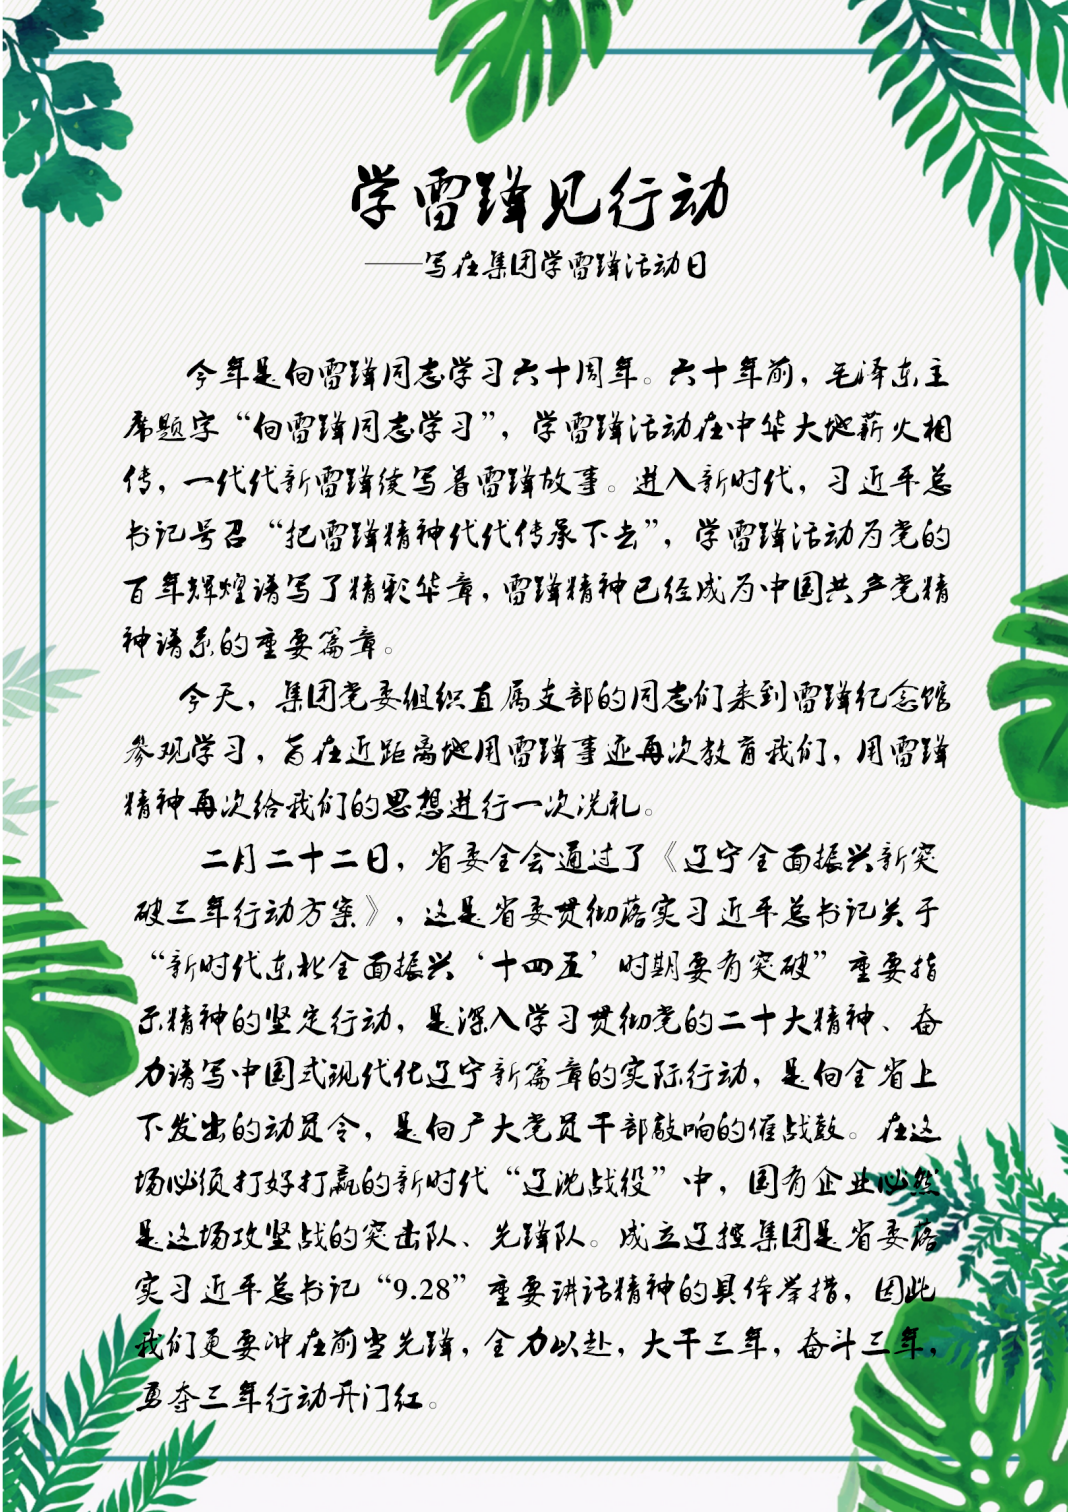 学雷锋见行动
——写在集团学雷锋活动日
今年是向雷锋同志学习六十周年。六十年前，毛泽东主
席题字“向雷锋同志学习”，学雷锋活动在中华大地薪火相
传，一代代新雷锋续写着雷锋故事。进入新时代，习近平总
书记号召“把雷锋精神代代传承下去”，学雷锋活动为党的
百年辉煌谱写了精彩华章，雷锋精神已经成为中国共产党精
神谱系的重要篇章。
今天，集团党委组织直属支部的同志们来到雷锋纪念馆
参观学习，旨在近距离地用雷锋事迹再次教育我们，用雷锋
精神再次给我们的思想进行一次洗礼。
二月二十二日，省委全会通过了《辽宁全面振兴新突
破三年行动方案》，这是省委贯彻落实习近平总书记关于
“新时代东北全面振兴‘十四五’时期要有突破”重要指
示精神的坚定行动，是深入学习贯彻党的二十大精神、奋
力谱写中国式现代化辽宁新篇章的实际行动，是向全省上
下发出的动员令，是向广大党员干部敲响的催战鼓。在这
场必须打好打赢的新时代“辽沈战役”中，国有企业必然
是这场攻坚战的突击队、先锋队。成立辽控集团是省委落
实习近平总书记“9.28”重要讲话精神的具体举措，因此
我们更要冲在前当先锋，全力以赴，大干三年，奋斗三年，
勇夺三年行动开门红。